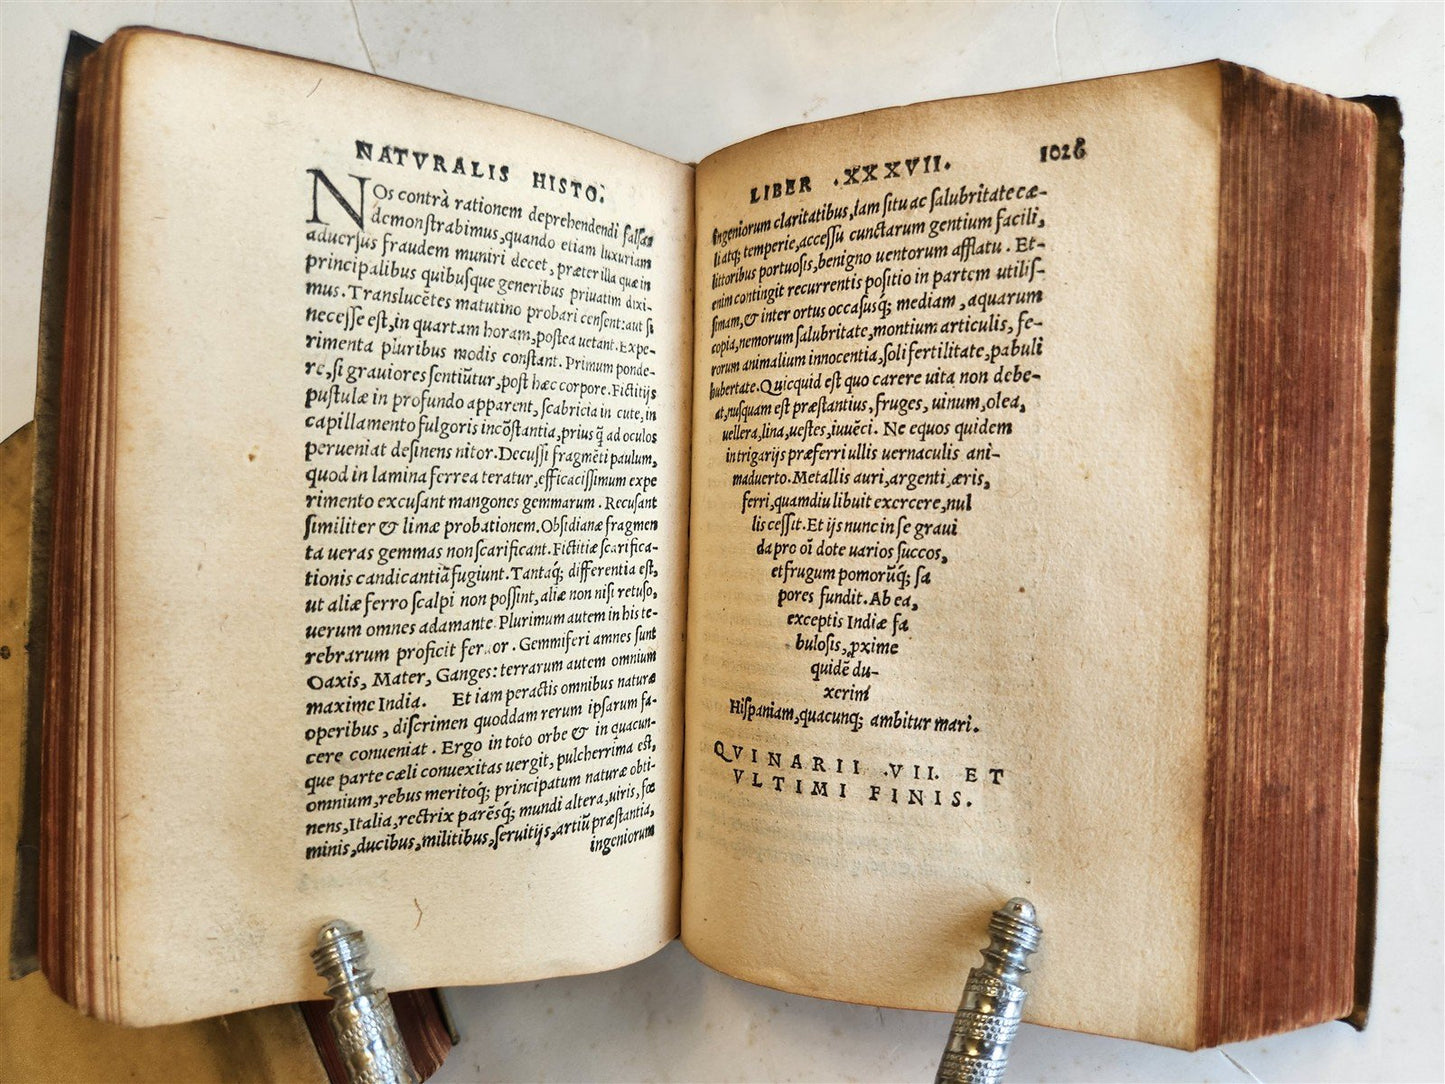 NATVRALIS HISTO.
NOs contrà rationem deprehendendi falsas
demonstrabimus, quando etiam luxuriam
aduersus fraudem muniri decet, præter illa quæ in
principalibus quibusque generibus priuatim dixi-
mus. Translucētes matutino probari censent: aut si
necesse est, in quartam horam, postea uetant. Expe-
rimenta pluribus modis constant. Primum ponde-
re, si grauiores sentiūtur, post hæc corpore. Fictitijs
pustulæ in profundo apparent, scabricia in cute, in
capillamento fulgoris incōstantia, prius q̄ ad oculos
perueniat desinens nitor. Decussi fragmēti paulum,
quod in lamina ferrea teratur, efficacissimum expe
rimento excusant mangones gemmarum. Recusant
similiter & limæ probationem. Obsidianæ fragmen
ta ueras gemmas non scarificant. Fictitiæ scarifica-
tionis candicantiā fugiunt. Tantaq; differentia est,
ut aliæ ferro scalpi non possint, aliæ non nisi retuso,
uerum omnes adamante. Plurimum autem in his te-
rebrarum proficit fer or. Gemmiferi amnes sunt
Oaxis, Mater, Ganges: terrarum autem omnium
maxime India. Etiam peractis omnibus naturæ
operibus, discrimen quoddam rerum ipsarum fa-
cere conueniat. Ergo in toto orbe & in quacun-
que parte cæli conuexitas uergit, pulcherrima est,
omnium, rebus meritoq; principatum naturæ obti-
nens, Italia, rectrix parēsq; mundi altera, uiris, foe
minis, ducibus, militibus, seruitijs, artiū præstantia,
ingeniorum
LIBER .XXXVII. 1028
ingeniorum claritatibus, iam situ ac salubritate cæ-
li atq; temperie, accessu cunctarum gentium facili,
littoribus portuosis, benigno uentorum afflatu. Et-
enim contingit recurrentis positio in partem utilis-
simam, & inter ortus occasusq; mediam, aquarum
copia, nemorum salubritate, montium articulis, fe-
rorum animalium innocentia, soli fertilitate, pabuli
hubertate. Quicquid est quo carere uita non debe-
at, nusquam est præstantius, fruges, uinum, olea,
uellera, lina, uestes, iuuēci. Ne equos quidem
in trigarijs præferri ullis uernaculis ani-
maduerto. Metallis auri, argenti, æris,
ferri, quamdiu libuit exercere, nul
lis cessit. Et ijs nunc in se graui
da pro oī dote uarios succos,
et frugum pomorūq; sa
pores fundit. Ab ea,
exceptis Indiæ fa
bulosis, ꝓxime
quidē du-
xerim
Hispaniam, quacunq; ambitur mari.
QVINARII .VII. ET
VLTIMI FINIS.